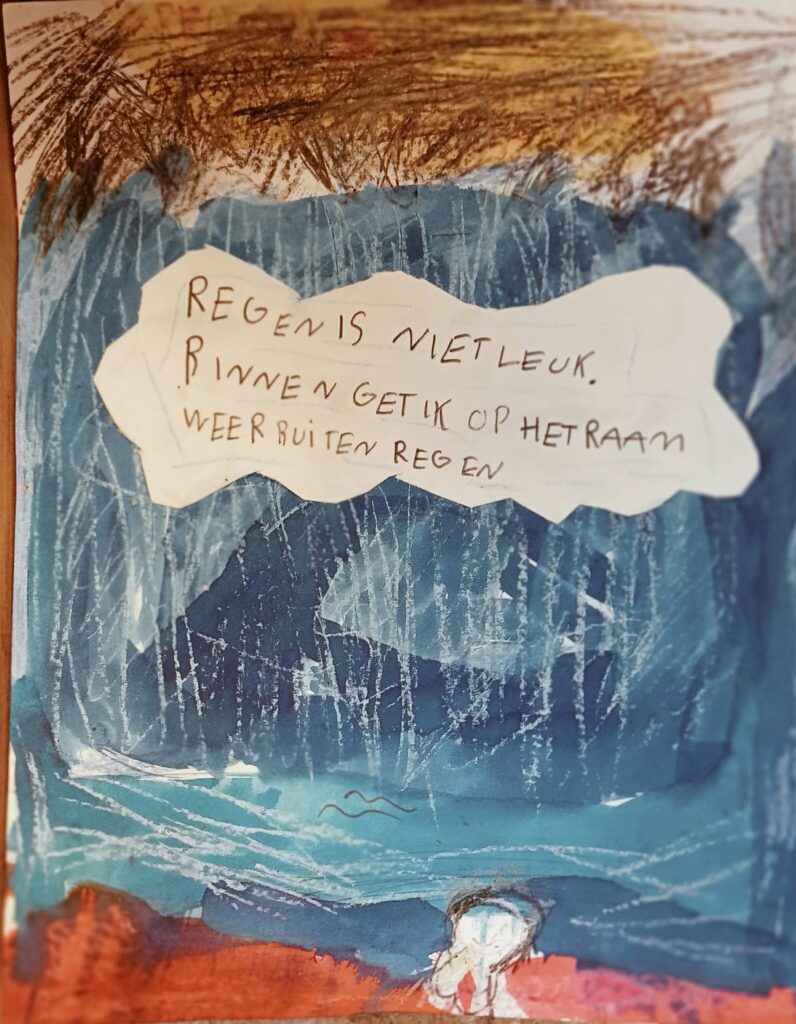 REGEN IS NIET LEUK.
BINNEN GETIK OP HET RAAM
WEER BUITEN REGEN